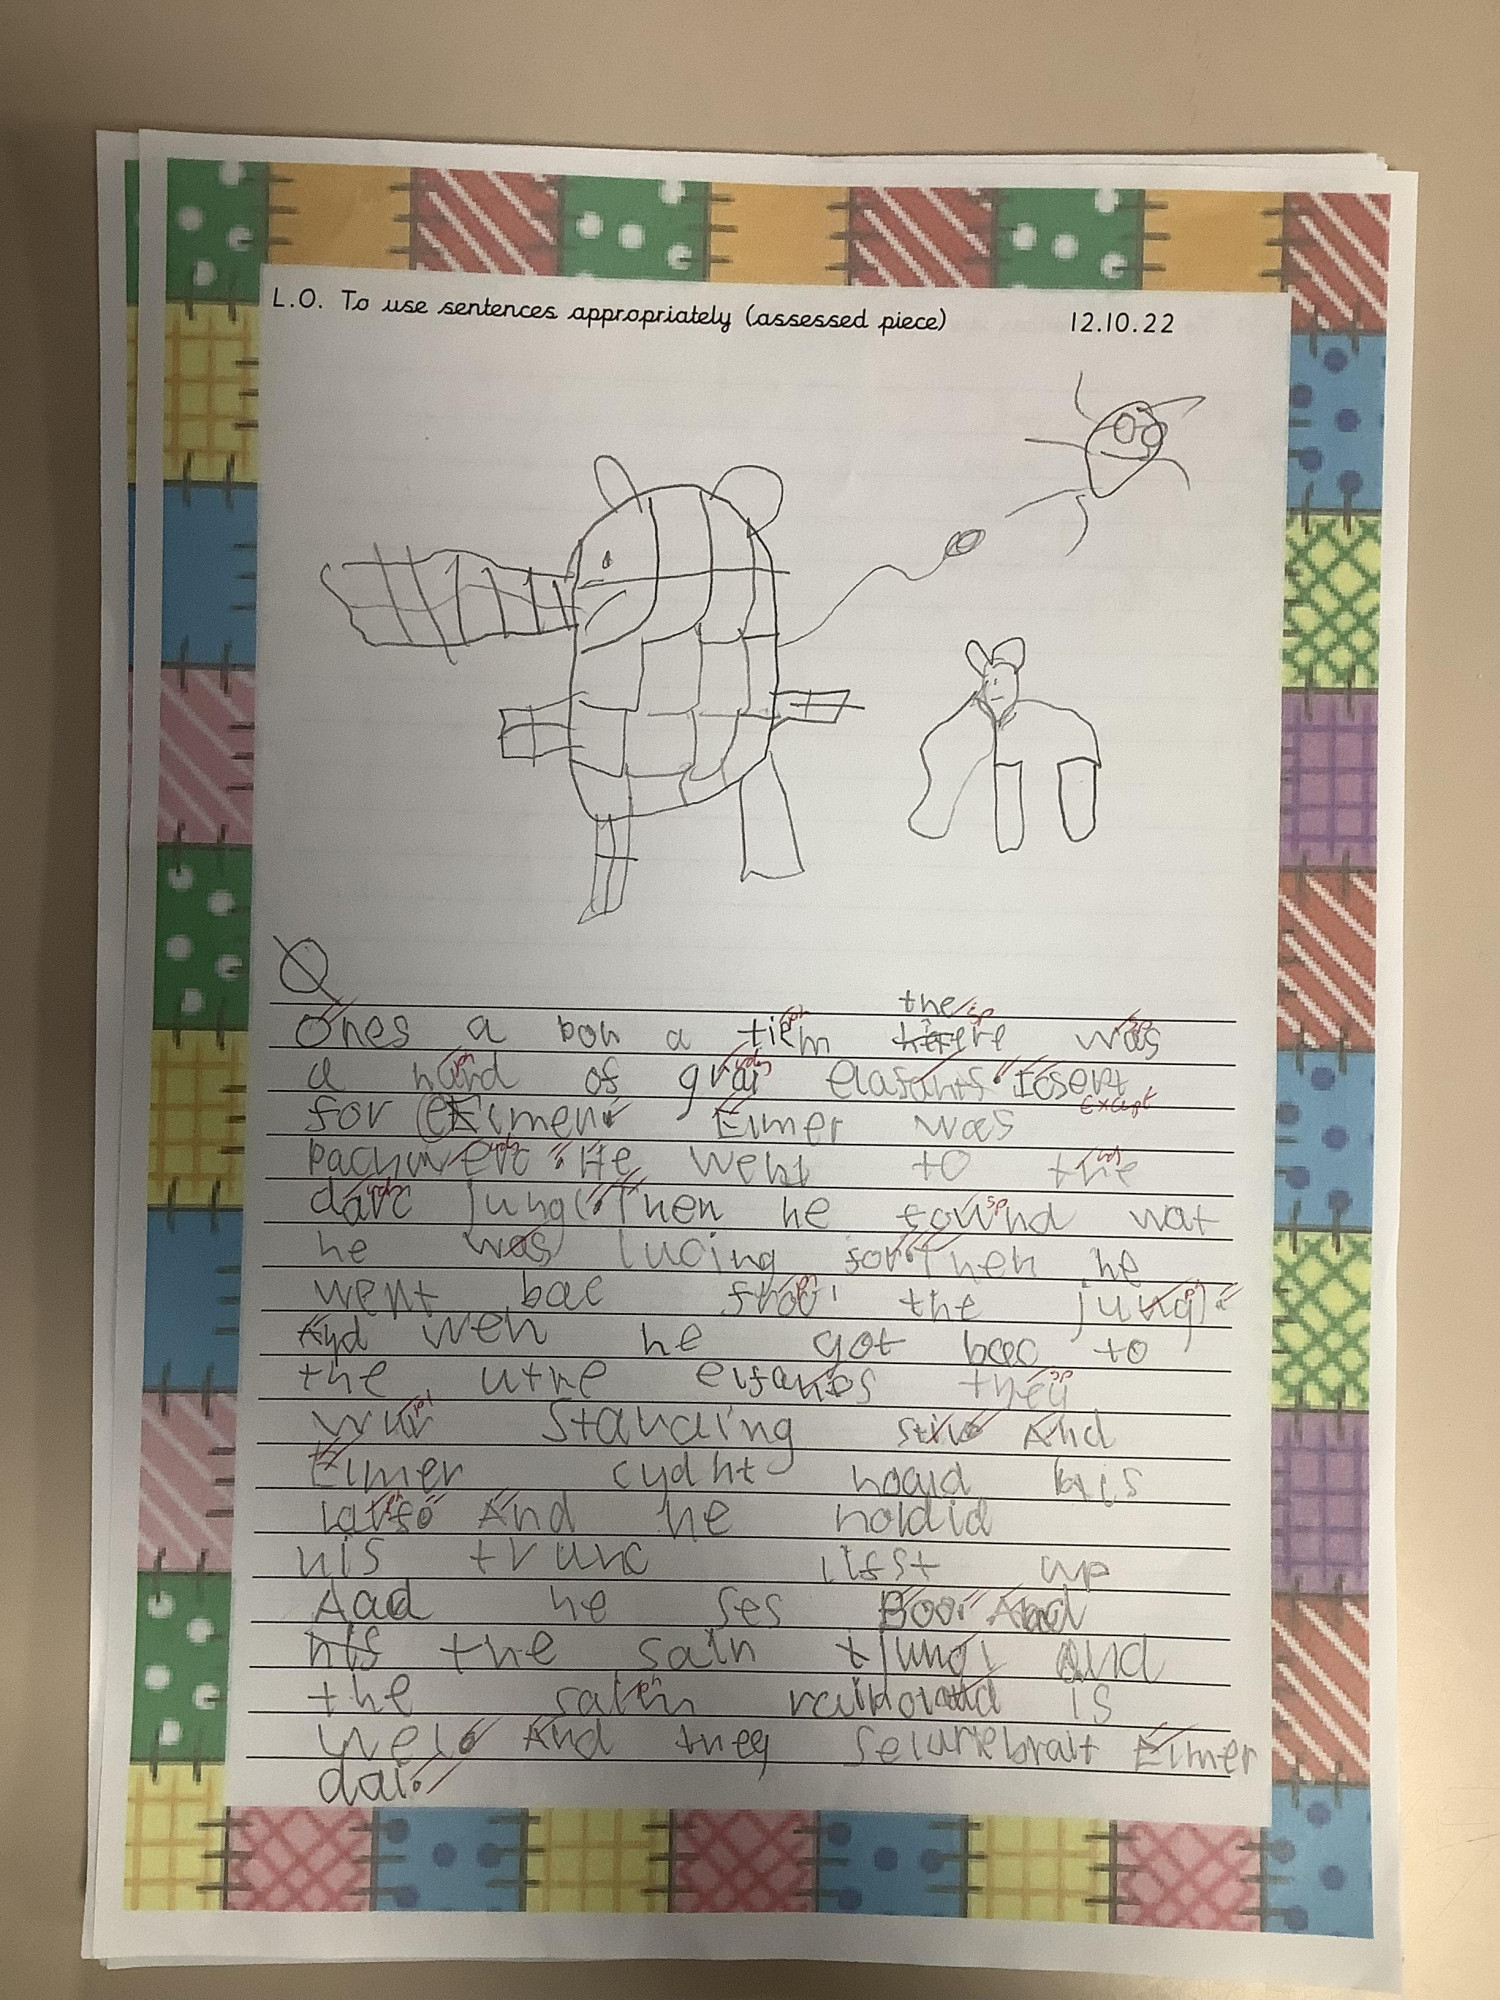 L.O. To use sentences appropriately (assessed piece) 12.10.22
the sp
Ones a bon a tiem was
a hard of grai elafants. Iosent
except
for Elmer Elmer was
pachwerc. He went to the
darc jungl. Then he fownd wat
he was lucing for. Then he
went bac froo the jungl
And wen he got bac to
the uthe elfants they
wur standing stil And
Elmer cydnt hoald his
larf And he holdid
his trunc lifst up
And he ses Boo. And
the sain jungl and
the saim is
wel. And they seluriebrait Elmer
dai.